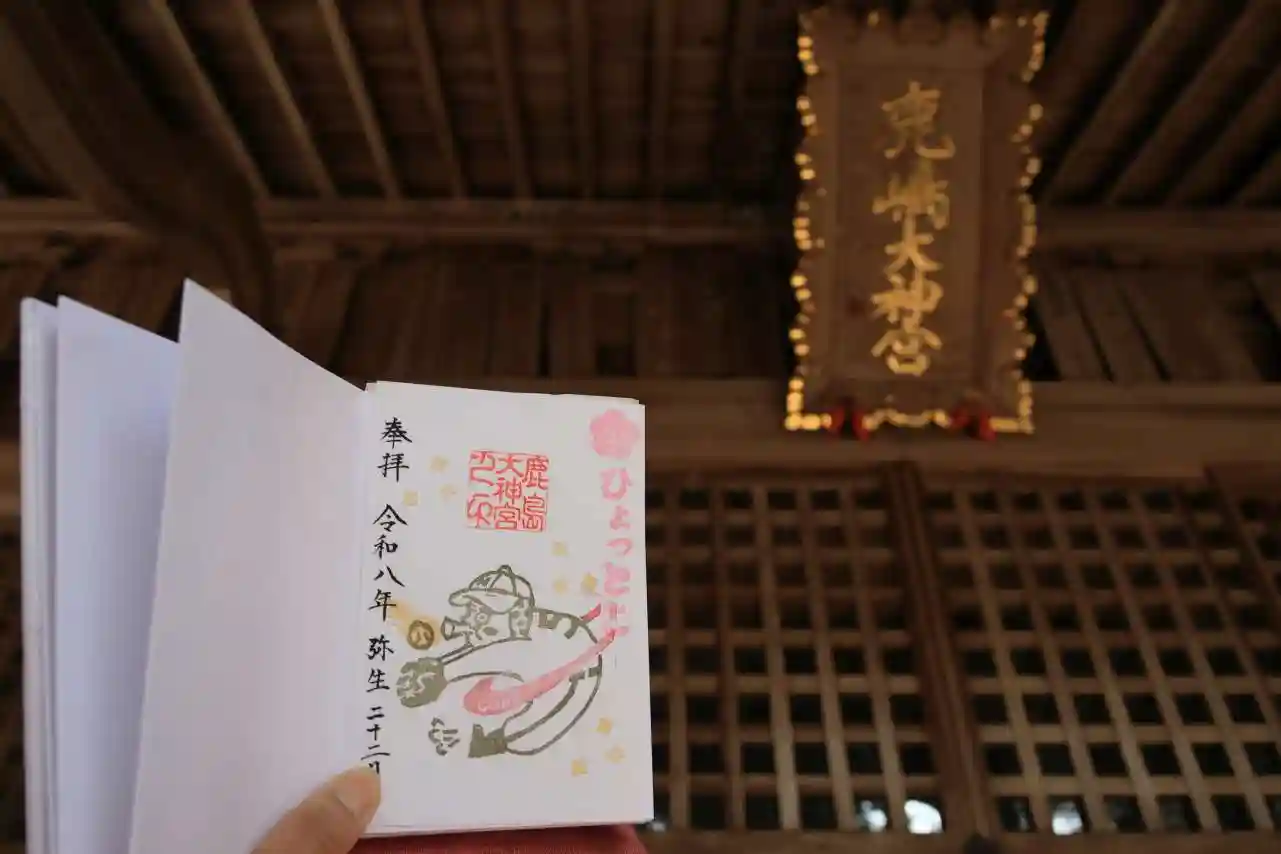 鹿嶋大神宮
ひょっと
鹿島
大神宮
之印
奉拝 令和八年 弥生 二十二日